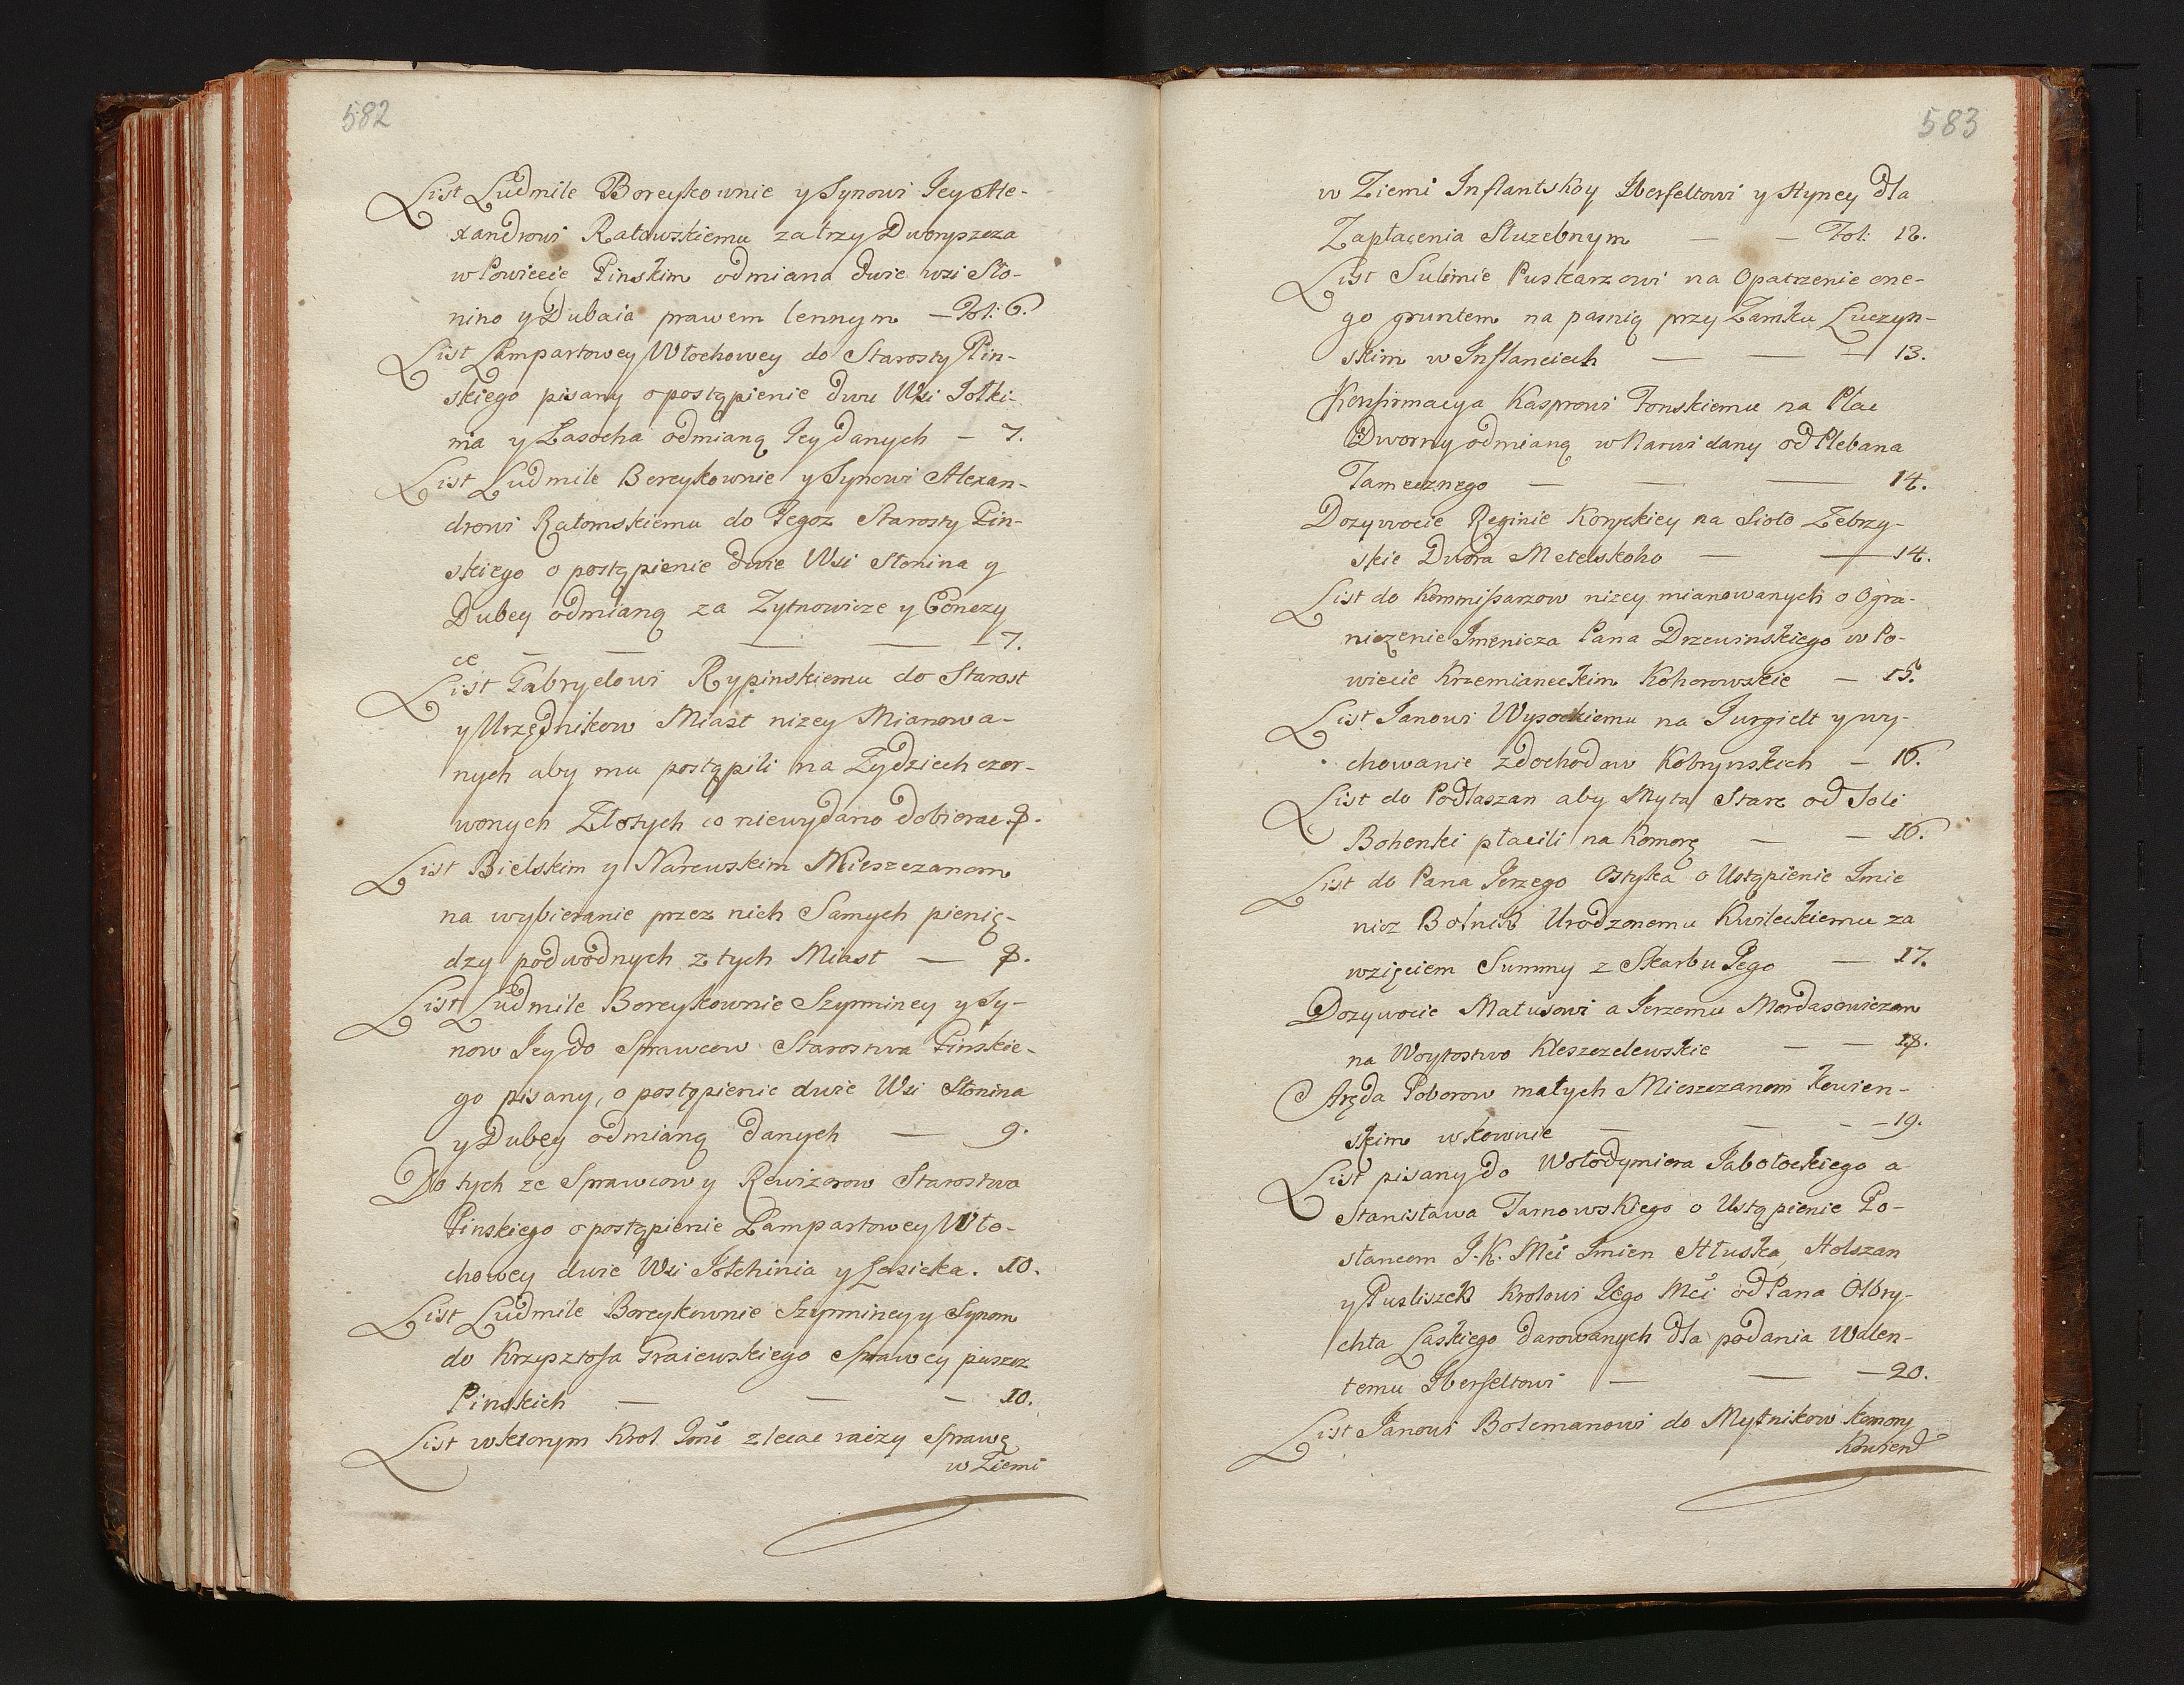 582
List Ludmile Boreykownie y Synowi Jey Ale-
xandrowi Ratowskiemu za trzy Dworyszcza
w Powiecie Pinskim odmiana dwie wsi Sto-
nino y Dubaia prawem lennym — Fol: 6.
List Lampartowey Włochowey do Starosty Pin-
skiego pisany o postąpienie dwu Wsi Jotki-
nia y Łasocha odmianą Jey danych — 7.
List Ludmile Boreykownie y Synowi Alexan-
drowi Ratomskiemu do Tegoż Starosty Pin-
skiego o postąpienie dwie Wsi Stonina y
Dubey odmianą za Zytnowicze y Conczy
ce — — — — 7.
List Gabryelowi Rypinskiemu do Starost
y Urzędnikow Miast nizey Mianowa-
nych aby mu postąpili na Żydziech czer-
wonych Złotych co niewydano dobierac 8.
List Bielskim y Narewskim Mieszczanom
na wybieranie przez nich Samych pienię-
dzy podwodnych z tych Miast — 8.
List Ludmile Boreykownie Szyrminey y Sy-
now Jey do Sprawcow Starostwa Pinskie-
go pisany, o postąpienie dwie Wsi Stonina
y Dubey odmianą danych — 9.
Do tych ze Sprawcow y Rewizorow Starostwa
Pinskiego o postąpienie Lampartowey Wło-
chowey dwie Wsi Jołchinia y Łasicka. 10.
List Ludmile Boreykownie Szyrminey y Synom
do Krzysztofa Graiewskiego Sprawcy puszcz
Pinskich — — — 10.
List w ktorym Krol Jmć zlecac raczy Sprawę
w Ziemi
583
w Ziemi Inflantskoy Iberfeltowi y Styney dla
Zapłacenia Służebnym — — Fol: 12.
List Sulimie Puskarzowi na Opatrzenie one-
go gruntem na pasnią przy Zamku Luczyn-
skim w Inflanciech — — — 13.
Konfirmacya Kasprowi Fonskiemu na Plac
Dworny odmianą w Narwi dany od Plebana
Tamecznego — — — 14.
Dozywocie Reginie Koryckiey na Sioło Zebrzy-
skie Dwora Metelskoho — — 14.
List do Kommissarzow nizey mianowanych o Ogra-
niczenie Jmenicza Pana Drzewinskiego w Po-
wiecie Krzemianeckim Kohorowskie — 15.
List Janowi Wysockiemu na Jurgielt y wy-
chowanie z dochodow Kobrynskich — 16.
List do Podlaszan aby Myta Stare od Soli
Bohenki płacili na Komorę — — 16.
List do Pana Jerzego Ostyka o Ustąpienie Imie
nicz Bolnik Urodzonemu Kwileckiemu za
wzięciem Summy z Skarbu Jego — 17.
Dozywocie Matusowi a Jerzemu Mordasowiczom
na Woytostwo Kleszczelewskie — — 18.
Aręda Poborow małych Mieszczanom Kowien-
skim w Kownie — — — 19.
List pisany do Wołodymiera Zabołockiego a
Stanisława Tarnowskiego o Ustąpienie Po-
słancom J. K. Mci Jmien Hłuska, Holszan
y Pusliszek Krolowi Jego Mci od Pana Olbry-
chta Łaskiego darowanych dla podania Walen-
temu Iberfeltowi — — — 20.
List Janowi Bolemanowi do Mytnikow Komory
Kowien